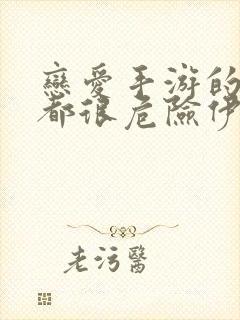 戀愛手游的
都很危險伊
老污醫